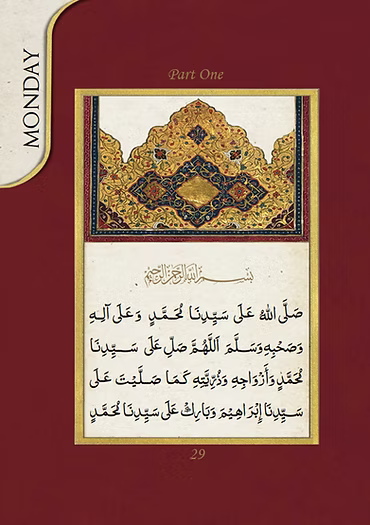 MONDAY
Part One
بِسْمِ اللهِ الرَّحْمٰنِ الرَّحِيْمِ
صَلَّى اللهُ عَلَى سَيِّدِنَا مُحَمَّدٍ وَعَلَى آلِهِ
وَصَحْبِهِ وَسَلَّمَ اَللَّهُمَّ صَلِّ عَلَى سَيِّدِنَا
مُحَمَّدٍ وَأَزْوَاجِهِ وَذُرِّيَّتِهِ كَمَا صَلَّيْتَ عَلَى
سَيِّدِنَا إِبْرَاهِيْمَ وَبَارِكْ عَلَى سَيِّدِنَا مُحَمَّدٍ
29